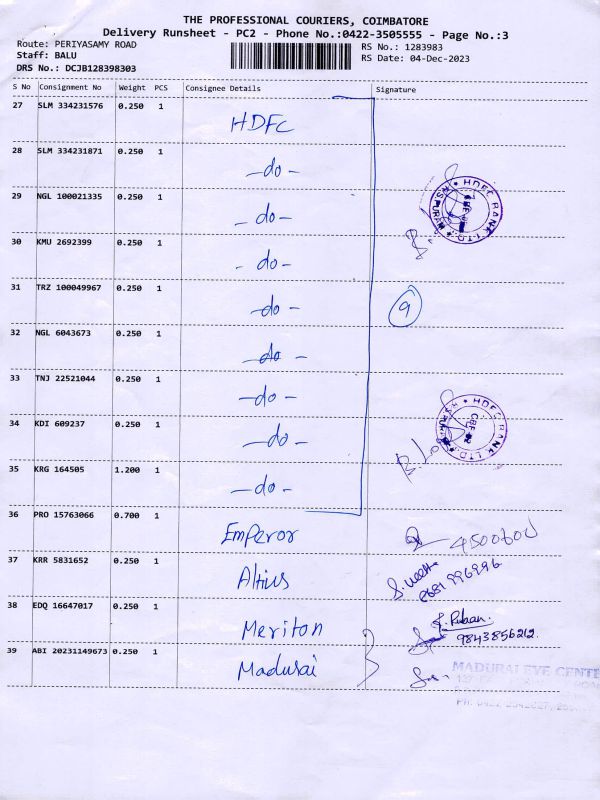 THE PROFESSIONAL COURIERS, COIMBATORE
Delivery Runsheet - PC2 - Phone No.:0422-3505555 - Page No.:3
Route: PERIYASAMY ROAD
Staff: BALU
DRS No.: DCJB128398303
RS No.: 1283983
RS Date: 04-Dec-2023
S No Consignment No Weight PCS Consignee Details Signature
27 SLM 334231576 0.250 1 HDFC
28 SLM 334231871 0.250 1 -do-
29 NGL 100021335 0.250 1 -do-
30 KMU 2692399 0.250 1 -do-
31 TRZ 100049967 0.250 1 -do- 9
32 NGL 6043673 0.250 1 -do-
33 TNJ 22521044 0.250 1 -do-
34 KDI 609237 0.250 1 -do-
35 KRG 164505 1.200 1 -do-
HDFC BANK LTD.
HDFC BANK LTD.
36 PRO 15763066 0.700 1 Emperor
37 KRR 5831652 0.250 1 Altius
38 EDQ 16647017 0.250 1 Meriton 9843856212
39 ABI 20231149673 0.250 1 Madurai
MADURAI EYE CENTE